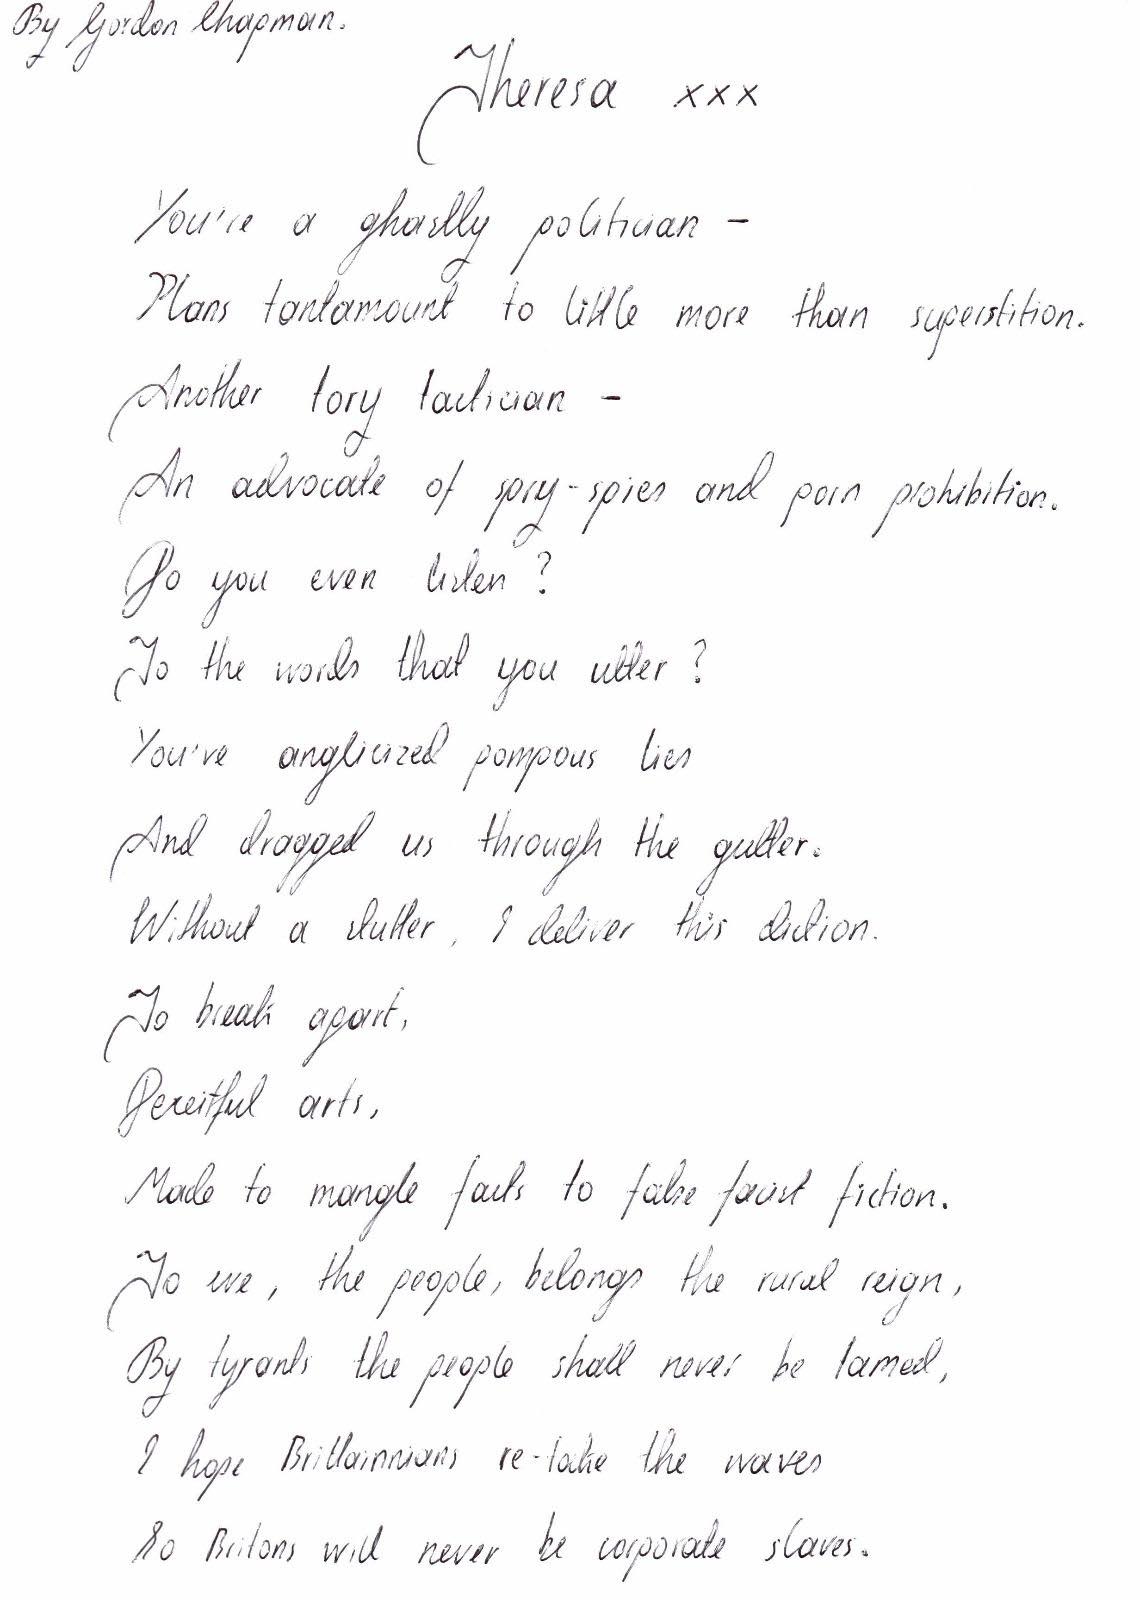 By Gordon Chapman.
Theresa xxx
You're a ghastly politician –
Plans tantamount to little more than superstition.
Another tory tactician –
An advocate of spry-spies and porn prohibition.
Do you even listen?
To the words that you utter?
You've anglicized pompous lies
And dragged us through the gutter.
Without a stutter, I deliver this diction.
To break apart,
Deceitful arts,
Made to mangle facts to false facist fiction.
To we, the people, belongs the rural reign,
By tyrants the people shall never be tamed,
I hope Brittainnians re-take the waves
So Britons will never be corporate slaves.